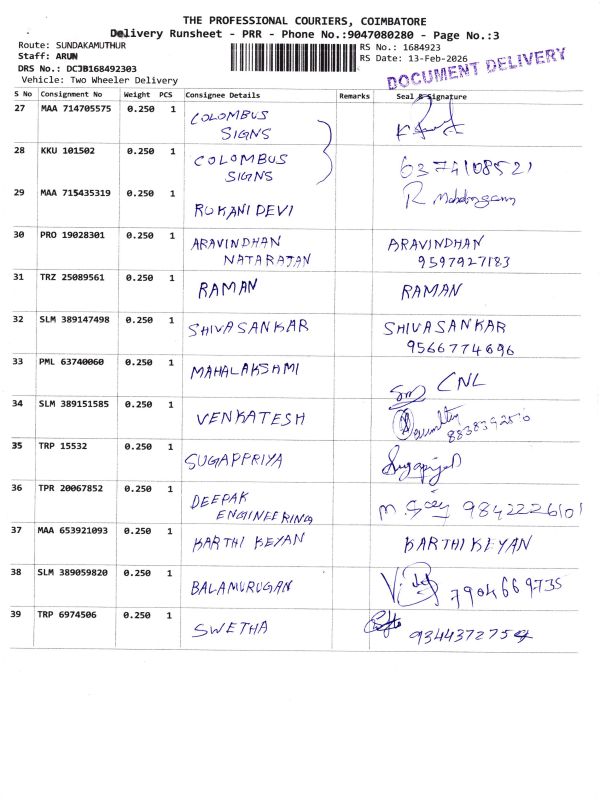 THE PROFESSIONAL COURIERS, COIMBATORE
Delivery Runsheet - PRR - Phone No.:9047080280 - Page No.:3
Route: SUNDAKAMUTHUR
RS No.: 1684923
Staff: ARUN
RS Date: 13-Feb-2026
DRS No.: DCJB168492303
Vehicle: Two Wheeler Delivery
DOCUMENT DELIVERY
S No Consignment No Weight PCS Consignee Details Remarks Seal & Signature
27 MAA 714705575 0.250 1 COLOMBUS SIGNS
28 KKU 101502 0.250 1 COLOMBUS SIGNS 6374108521
29 MAA 715435319 0.250 1 ROKANI DEVI R
30 PRO 19028301 0.250 1 ARAVINDHAN NATARAJAN ARAVINDHAN 9597927183
31 TRZ 25089561 0.250 1 RAMAN RAMAN
32 SLM 389147498 0.250 1 SHIVASANKAR SHIVASANKAR 9566774696
33 PML 63740060 0.250 1 MAHALAKSHMI CNL
34 SLM 389151585 0.250 1 VENKATESH
35 TRP 15532 0.250 1 SUGAPPRIYA
36 TPR 20067852 0.250 1 DEEPAK ENGINEERING 9842226101
37 MAA 653921093 0.250 1 KARTHI KEYAN KARTHI KEYAN
38 SLM 389059820 0.250 1 BALAMURUGAN 7904669735
39 TRP 6974506 0.250 1 SWETHA 9344372754